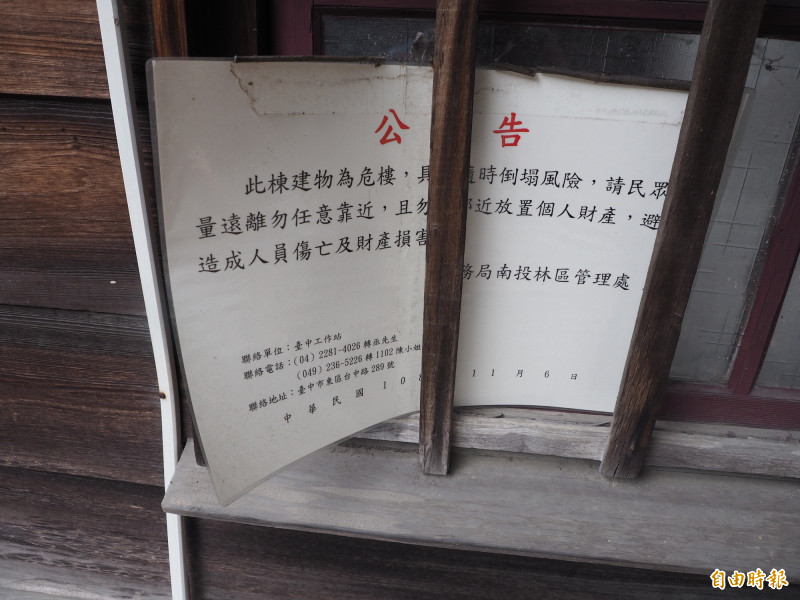 公告
此棟建物為危樓，具 時倒塌風險，請民眾
量遠離勿任意靠近，且勿 近放置個人財產，避
造成人員傷亡及財產損害
務局南投林區管理處
聯絡單位：臺中工作站
聯絡電話：(04) 2281-4026 轉巫先生
(049) 236-5226 轉 1102 陳小姐
聯絡地址：臺中市東區台中路 289 號
中華民國 108 11 月 6 日
自由時報